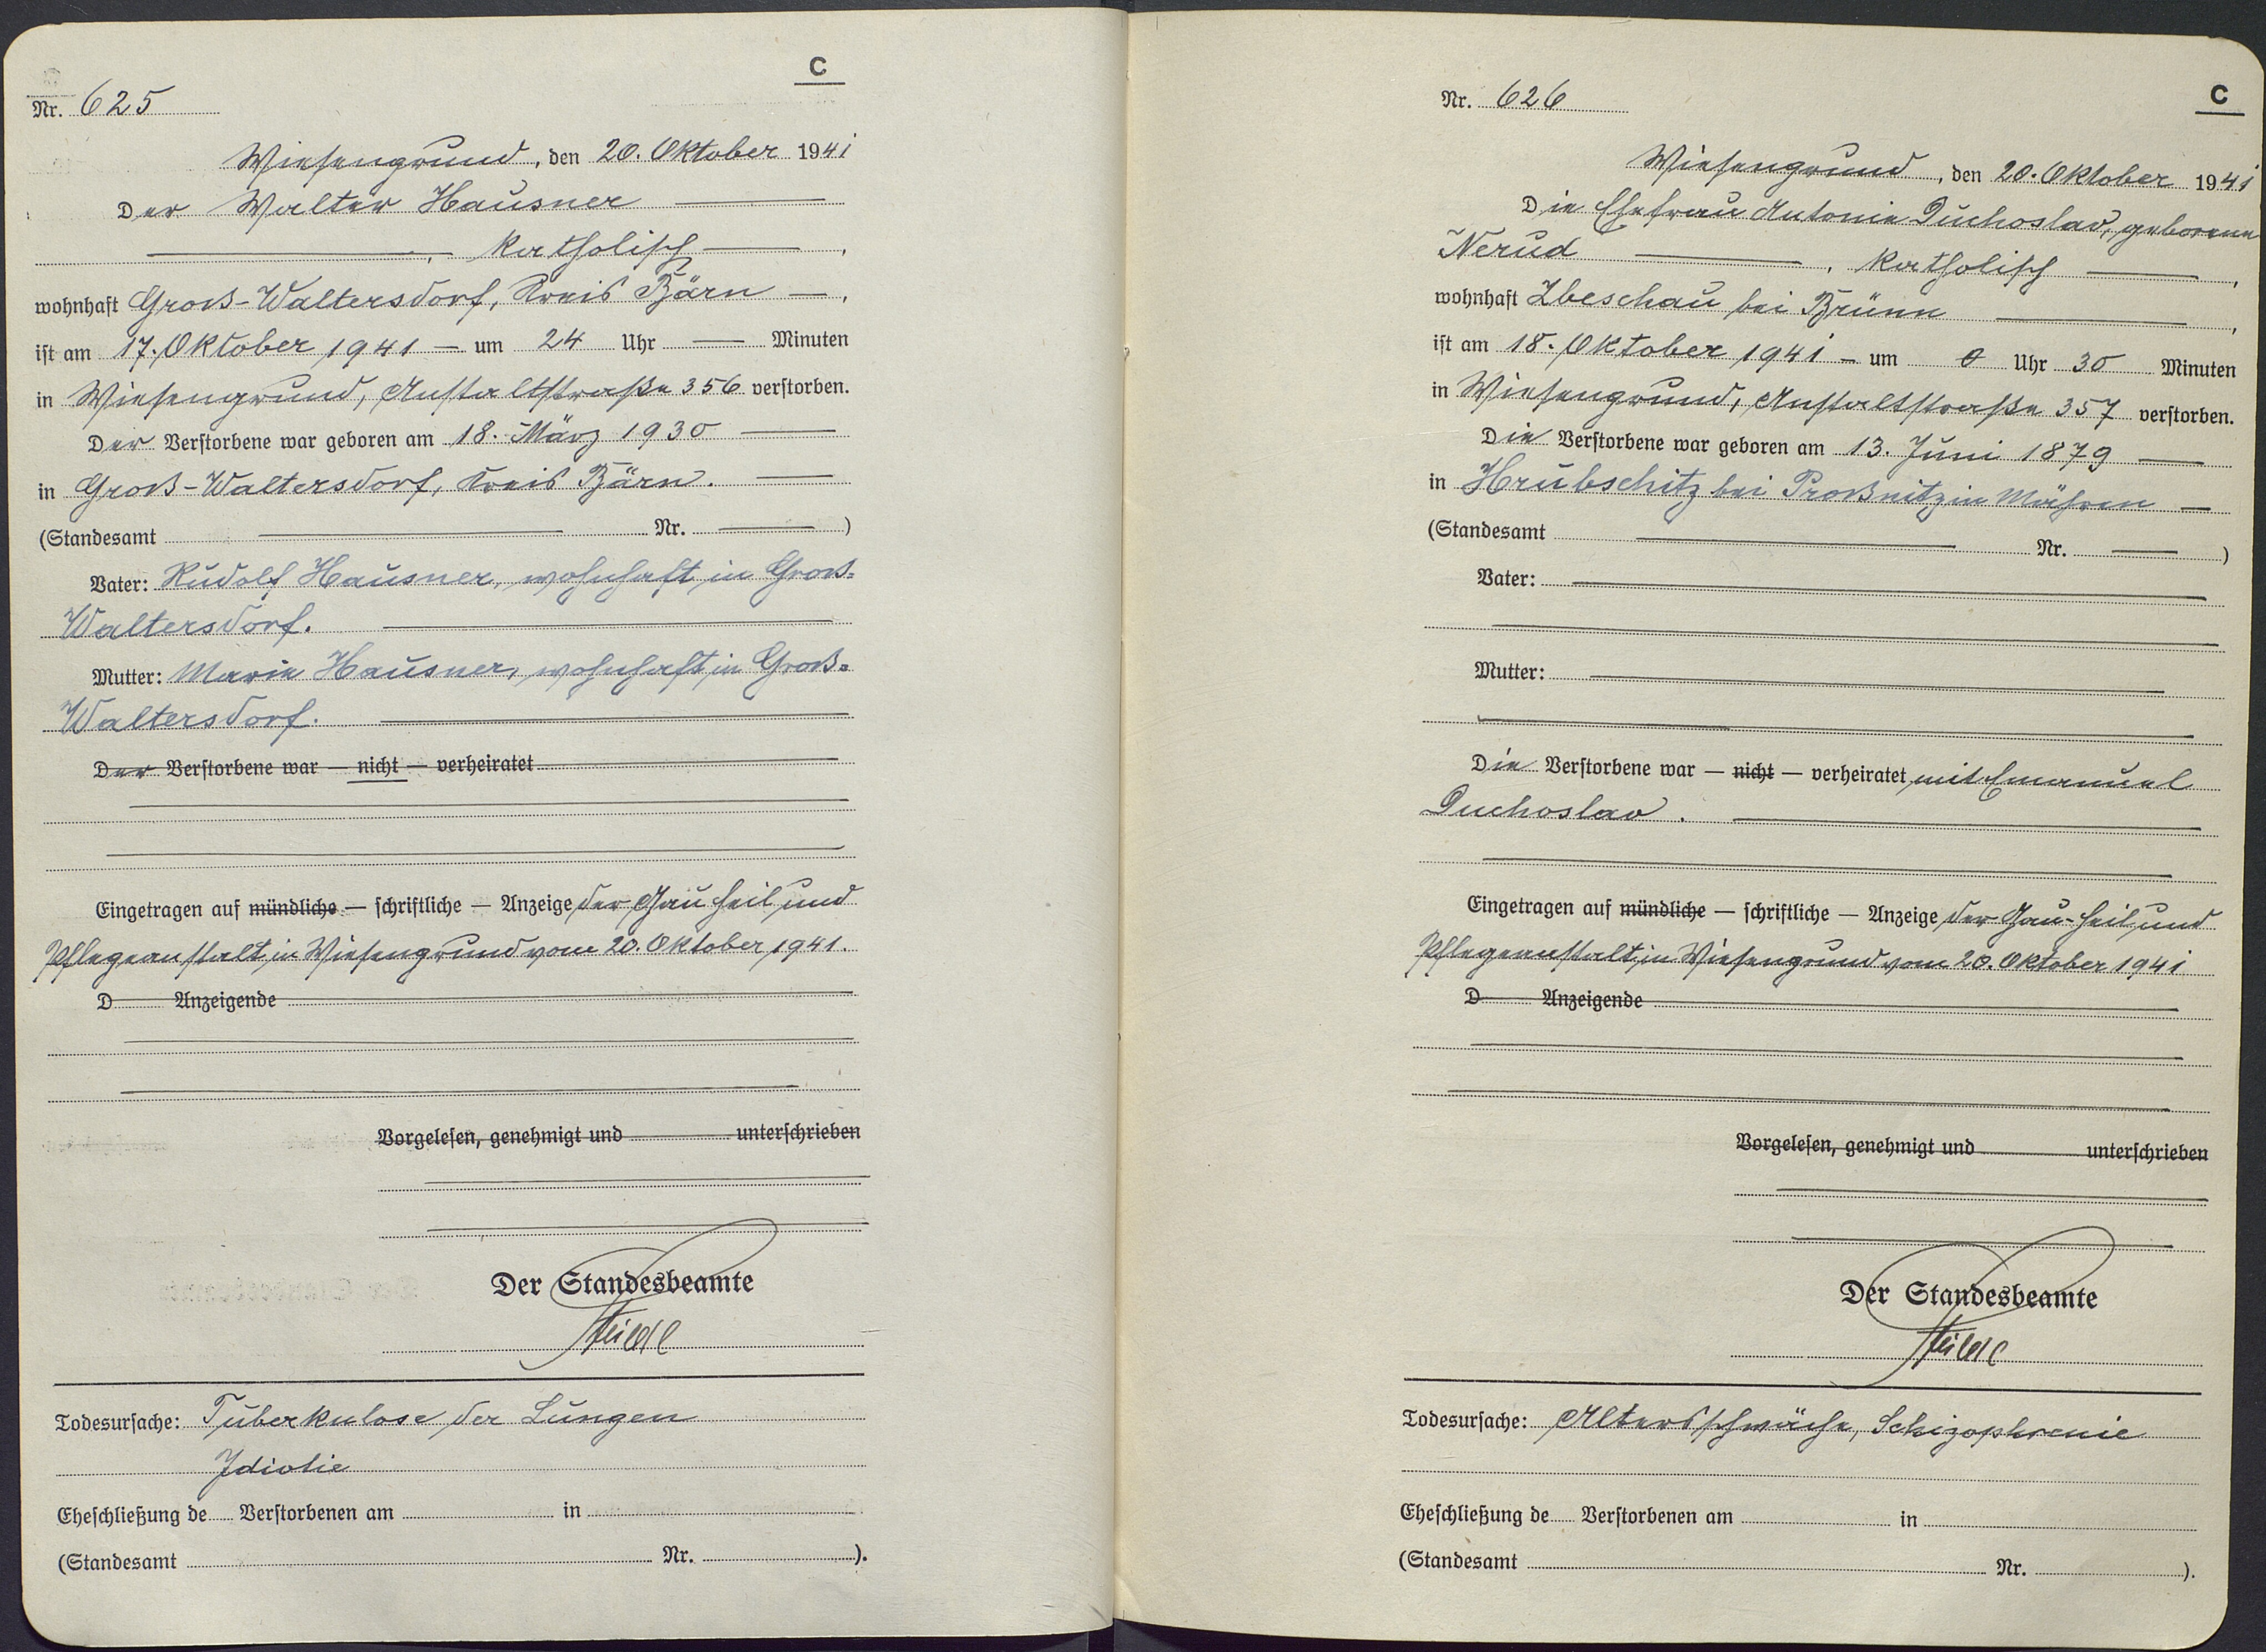 C
Nr. 625
Wiesengrund, den 20. Oktober 1941
Der Walter Hausner
, katholisch,
wohnhaft Groß-Waltersdorf, Kreis Bärn,
ist am 17. Oktober 1941 um 24 Uhr Minuten
in Wiesengrund, Anstaltstraße 356 verstorben.
Der Verstorbene war geboren am 18. März 1930
in Groß-Waltersdorf, Kreis Bärn.
(Standesamt Nr. )
Vater: Rudolf Hausner, wohnhaft in Groß-
Waltersdorf.
Mutter: Marie Hausner, wohnhaft in Groß-
Waltersdorf.
Der Verstorbene war — nicht — verheiratet
Eingetragen auf mündliche — schriftliche — Anzeige der Gau Heil und
Pflegeanstalt in Wiesengrund vom 20. Oktober 1941.
D Anzeigende
Vorgelesen, genehmigt und unterschrieben
Der Standesbeamte
Todesursache: Tuberkulose der Lungen
Idiotie
Eheschließung de Verstorbenen am in
(Standesamt Nr. ).
C
Nr. 626
Wiesengrund, den 20. Oktober 1941
Die Ehefrau Antonie Duchoslav, geborene
Nerud, katholisch,
wohnhaft Zbeschau bei Brünn,
ist am 18. Oktober 1941 um 0 Uhr 30 Minuten
in Wiesengrund, Anstaltstraße 357 verstorben.
Die Verstorbene war geboren am 13. Juni 1879
in Hrubschitz bei Proßnitz in Mähren
(Standesamt Nr. )
Vater:
Mutter:
Die Verstorbene war — nicht — verheiratet mit Emanuel
Duchoslav.
Eingetragen auf mündliche — schriftliche — Anzeige der Gau-Heil und
Pflegeanstalt in Wiesengrund vom 20. Oktober 1941
D Anzeigende
Vorgelesen, genehmigt und unterschrieben
Der Standesbeamte
Todesursache: Altersschwäche, Schizophrenie
Eheschließung de Verstorbenen am in
(Standesamt Nr. ).